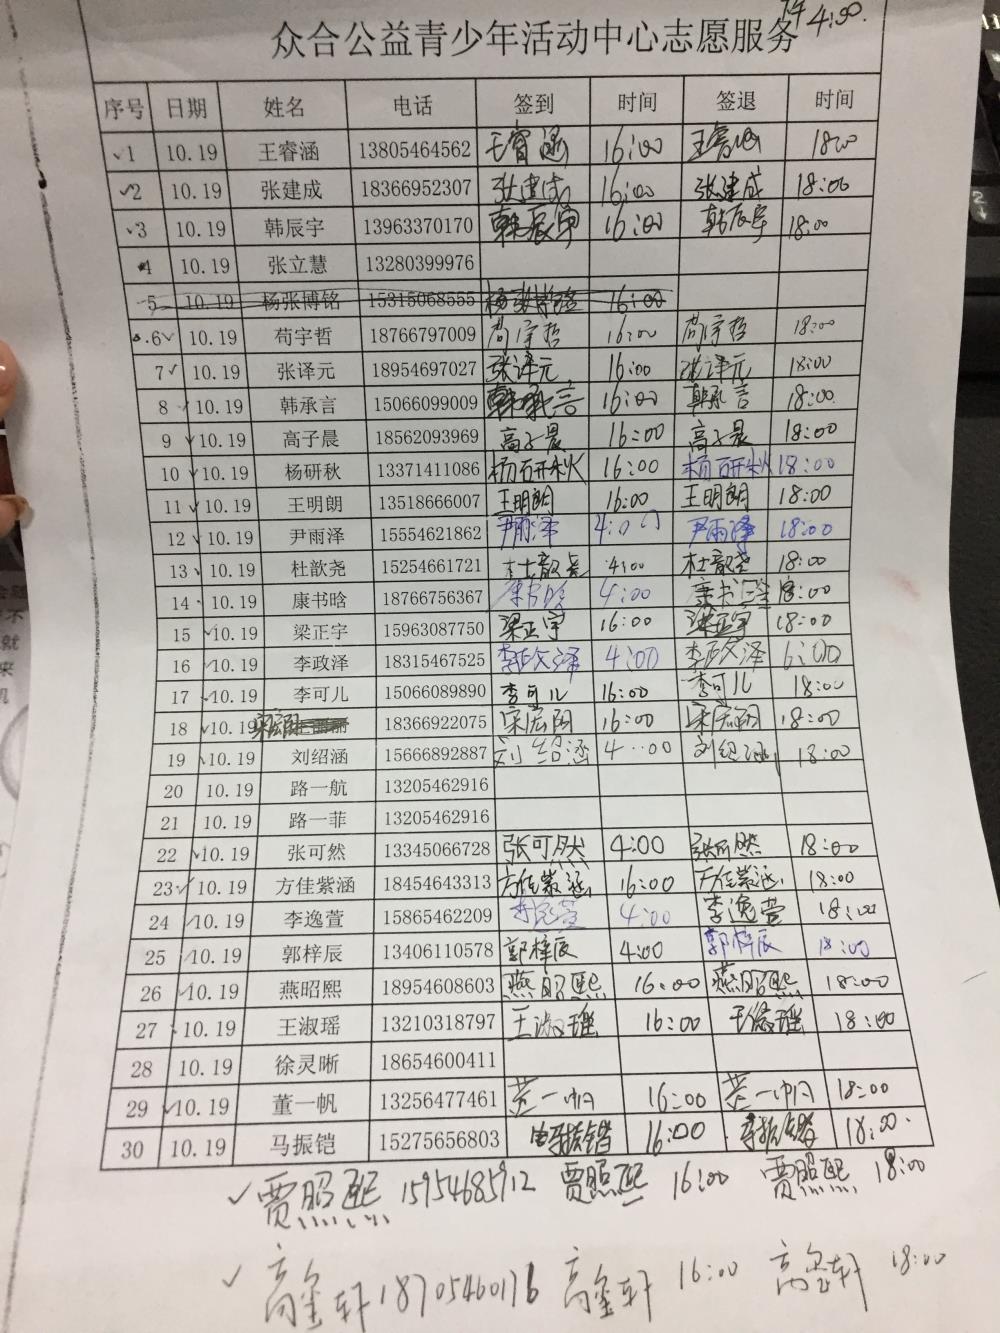 下午4:00.
众合公益青少年活动中心志愿服务
序号 日期 姓名 电话 签到 时间 签退 时间
✓1 10.19 王睿涵 13805464562 王睿涵 16:00 王睿涵 18:00
✓2 10.19 张建成 18366952307 张建成 16:00 张建成 18:00
✓3 10.19 韩辰宇 13963370170 韩辰宇 16:00 韩辰宇 18:00
4 10.19 张立慧 13280399976
5 10.19 杨张博铭 15315068555 杨张博铭 16:00
6✓ 10.19 苟宇哲 18766797009 苟宇哲 16:00 苟宇哲 18:00
7✓ 10.19 张译元 18954697027 张译元 16:00 张译元 18:00
8 ✓10.19 韩承言 15066099009 韩承言 16:00 韩承言 18:00
9 ✓10.19 高子晨 18562093969 高子晨 16:00 高子晨 18:00
10 ✓10.19 杨研秋 13371411086 杨研秋 16:00 杨研秋 18:00
11 ✓10.19 王明朗 13518666007 王明朗 16:00 王明朗 18:00
12 ✓10.19 尹雨泽 15554621862 尹雨泽 4:00 尹雨泽 18:00
13 ✓10.19 杜歆尧 15254661721 杜歆尧 4:00 杜歆尧 18:00
14 ✓10.19 康书晗 18766756367 康书晗 4:00 康书晗 18:00
15 ✓10.19 梁正宇 15963087750 梁正宇 16:00 梁正宇 18:00
16 ✓10.19 李政泽 18315467525 李政泽 4:00 李政泽 6:00
17 ✓10.19 李可儿 15066089890 李可儿 16:00 李可儿 18:00
18 ✓10.19 18366922075 16:00 18:00
19 ✓10.19 刘绍涵 15666892887 刘绍涵 4:00 刘绍涵 18:00
20 10.19 路一航 13205462916
21 10.19 路一菲 13205462916
22 ✓10.19 张可然 13345066728 张可然 4:00 张可然 18:00
23 ✓10.19 方佳紫涵 18454643313 方佳紫涵 16:00 方佳紫涵 18:00
24 ✓10.19 李逸萱 15865462209 李逸萱 4:00 李逸萱 18:00
25 ✓10.19 郭梓辰 13406110578 郭梓辰 4:00 郭梓辰 18:00
26 ✓10.19 燕昭熙 18954608603 燕昭熙 16:00 燕昭熙 18:00
27 ✓10.19 王淑瑶 13210318797 王淑瑶 16:00 王淑瑶 18:00
28 10.19 徐灵晰 18654600411
29 ✓10.19 董一帆 13256477461 董一帆 16:00 董一帆 18:00
30 10.19 马振铠 15275656803 马振铠 16:00 马振铠 18:00
✓贾照熙 15954685912 贾照熙 16:00 贾照熙 18:00
✓高玺轩 18705460176 高玺轩 16:00 高玺轩 18:00